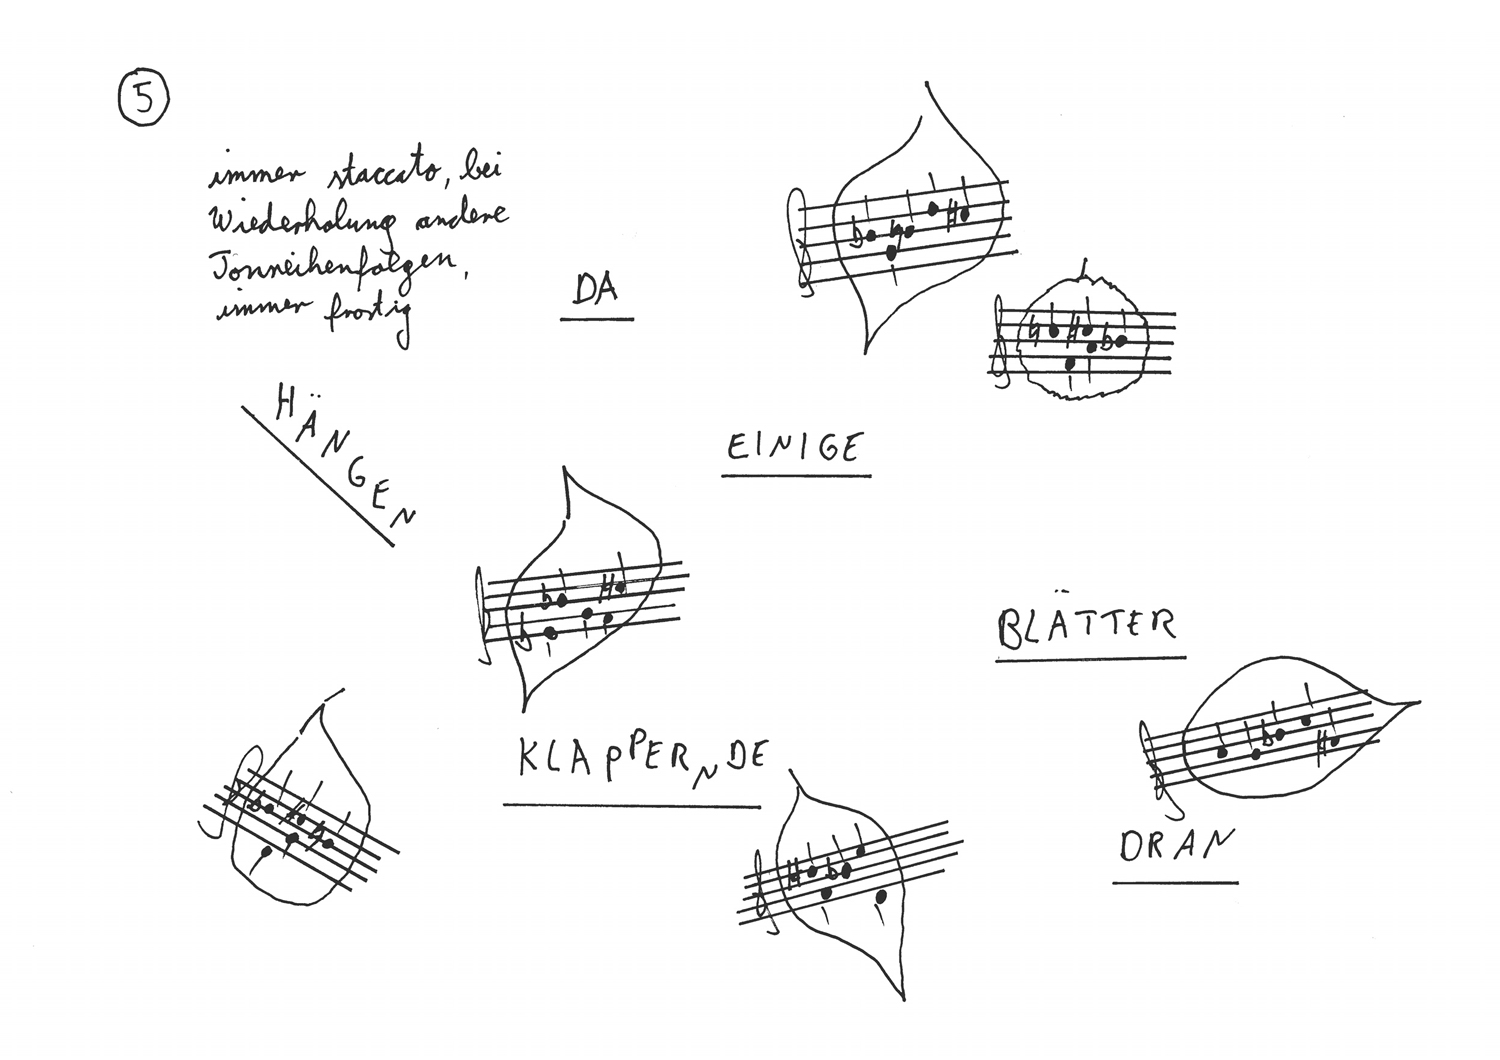 5
immer staccato, bei
Wiederholung andere
Tonreihenfolgen,
immer frostig
DA
HÄNGEN
EINIGE
BLÄTTER
KLAPPERNDE
DRAN